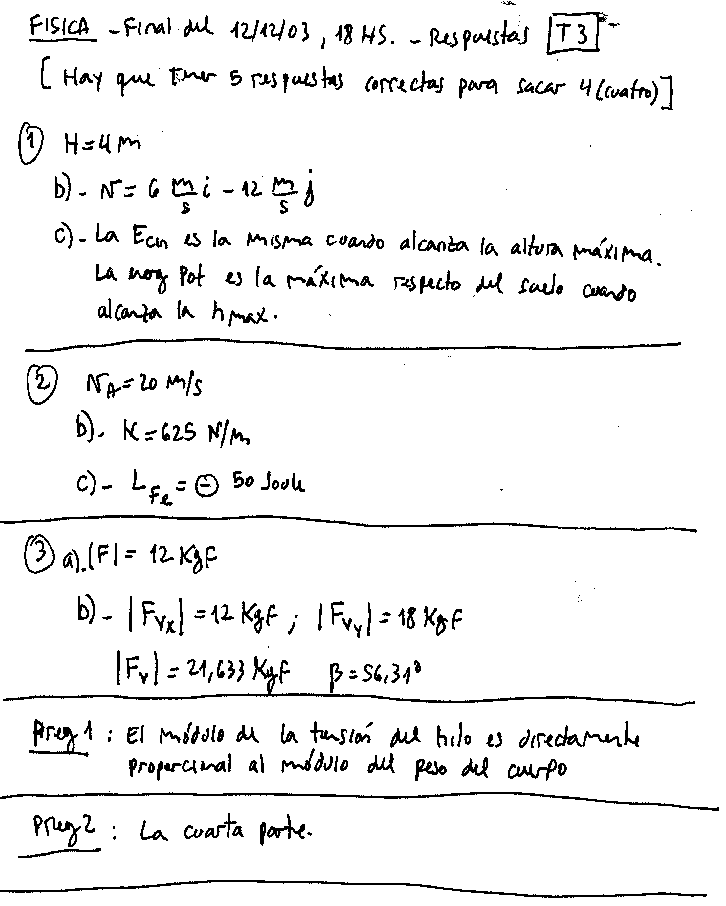 FISICA - Final del 12/12/03, 18 HS. - Respuestas T3
[Hay que tener 5 respuestas correctas para sacar 4 (cuatro)]
① H=4m
b)- v = 6 m/s i - 12 m/s j
c)- La Ecin es la misma cuando alcanza la altura máxima.
La energ Pot es la máxima respecto del suelo cuando
alcanza la hmax.
② vA = 20 m/s
b)- K=625 N/m
c)- LFe = ⊖ 50 Joule
③ a). |F| = 12 Kgf
b)- |Fvx| = 12 Kgf ; |Fvy| = 18 Kgf
|Fv| = 21,633 Kgf β = 56,31°
Preg 1 : El módulo de la tensión del hilo es directamente
proporcional al módulo del peso del cuerpo
Preg 2 : La cuarta parte.